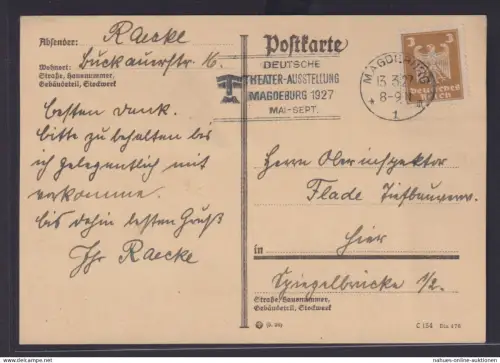 Absender: Raecke
Wohnort: Buckauerstr. 16.
Straße, Hausnummer,
Gebäudeteil, Stockwerk
Postkarte
DEUTSCHE
THEATER-AUSSTELLUNG
MAGDEBURG 1927
MAI-SEPT.
MAGDEBURG
13.3.27
8-9
* 1
3 3
Deutsches
Reich
besten Dank.
bitte zu behalten bis
ich gelegentlich mit
vorkomme.
bis dahin besten Gruß
Ihr Raecke
Herrn Oberinspektor
Flade Tiefbauverw.
hier
in
Spiegelbrücke 1/2.
Straße, Hausnummer,
Gebäudeteil, Stockwerk
C 154 Din 476